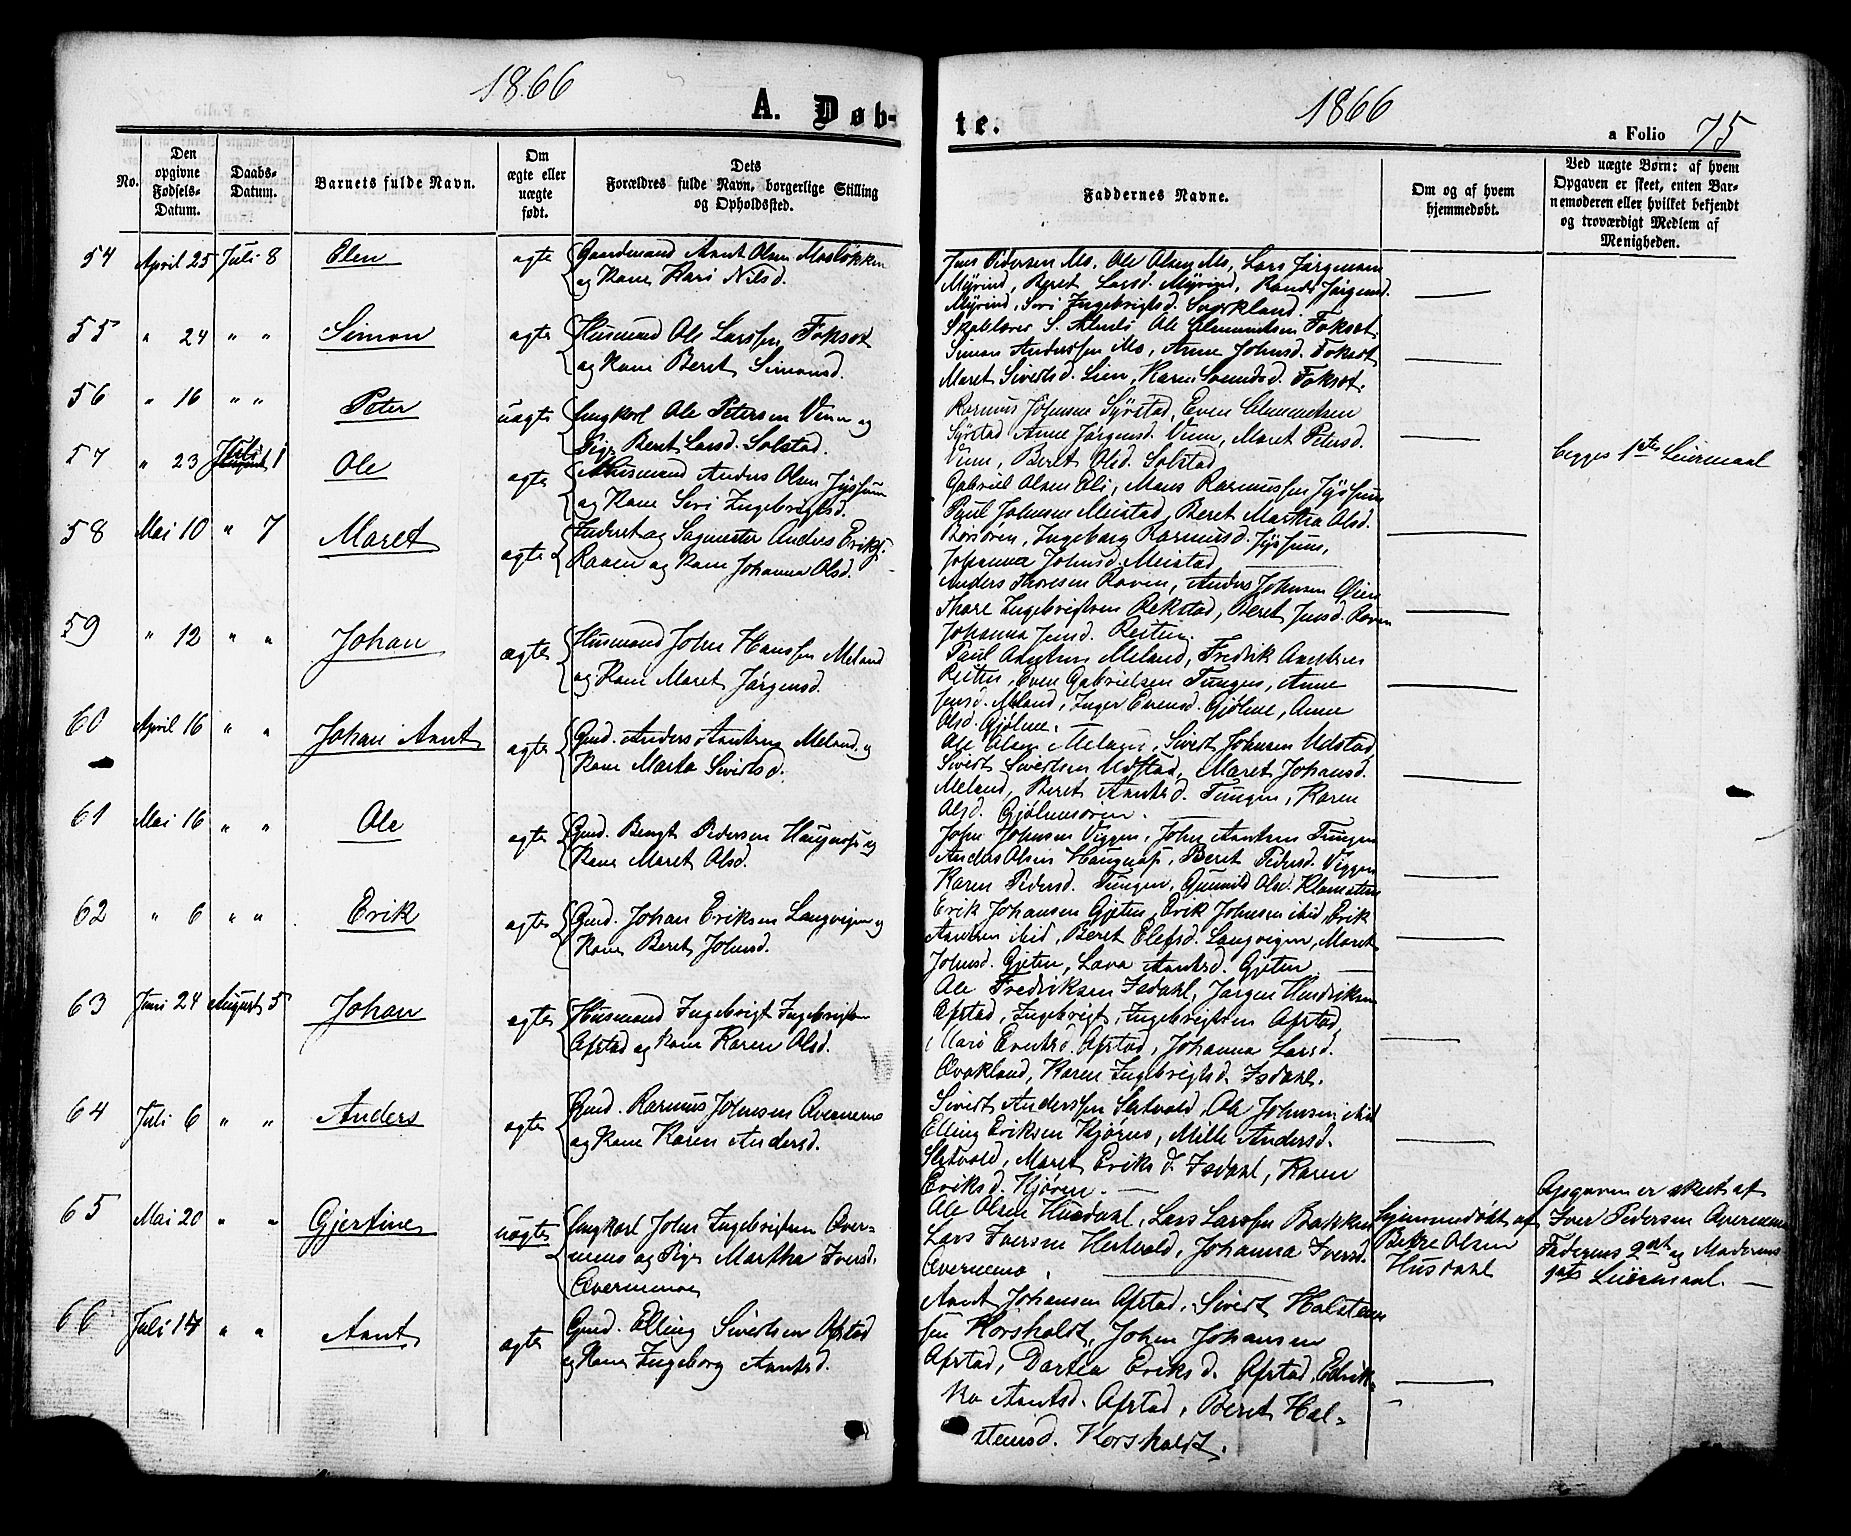 1866
A. Døb-
No.
Den opgivne Fødsels-Datum.
Daabs-Datum.
Barnets fulde Navn.
Om ægte eller uægte født.
Dets Forældres fulde Navn, borgerlige Stilling og Opholdssted.
54 April 25 Juli 8 Elen ægte Gaardmand Arnt Olsen Mosløkken
og Kone Kari Nilsd.
55 " 24 " " Simon ægte Husmand Ole Larssen Foksøt
og Kone Beret Simonsd.
56 " 16 " " Peter uægte Ungkarl Ole Petersen Vinn og
Pige Beret Larsd. Solstad.
57 " 23 Juli 1 Ole ægte Husmand Anders Olsen Jyssum
og Kone Siri Ingebrigtsd.
58 Mai 10 " 7 Maret ægte Inderst og Sagmester Anders Eriks.
Raaen og Kone Johanna Olsd.
59 " 12 " " Johan ægte Husmand John Hanssen Meland
og Kone Maret Jørgensd.
60 April 16 " " Johan Arnt ægte Gmd. Anders Arntsen Meland og
Kone Marta Sivertsd.
61 Mai 16 " " Ole ægte Gmd. Bengt Pedersen Haugnæss og
Kone Maret Olsd.
62 " 6 " " Erik ægte Gmd. Johan Eriksen Langvigen og
Kone Beret Johnsd.
63 Juni 24 August 5 Johan ægte Husmand Ingebrigt Ingebrigtsen
Ofstad og Kone Karen Olsd.
64 Juli 6 " " Anders ægte Gmd. Rasmus Johnsen Overnemo
og Kone Karen Andersd.
65 Mai 20 " " Gjertine uægte Ungkarl John Ingebrigtsen Over-
nemo og Pige Martha Iversd.
Overnemoe
66 Juli 14 " " Arnt ægte Gmd. Elling Sivertsen Ofstad
og Kone Ingeborg Arntsd.
te.
1866
a Folio 75
Faddernes Navne.
Om og af hvem hjemmedøbt.
Ved uægte Børn: af hvem Opgaven er skeet, enten Barnemoderen eller hvilket bekjendt og troværdigt Medlem af Menigheden.
Jens Pedersen Mo, Ole Olsen Mo, Lars Jørgensen
Myrind, Beret Larsd. Myrind, Randi Jørgensd.
Myrind, Siri Ingebrigtsd. Sværkland.
Skolelærer S. Ole Clemmetsen Foksøt
Simon Anderssen Mo, Anne Johnsd. Foksøt
Maret Sivertsd. Lien, Karen Svendsd. Foksøt.
Rasmus Johnsen Syrstad, Even Clemmetsen
Syrstad Anne Jørgensd. Vinn, Maret Petersd.
Vinn, Beret Olsd. Solstad
begges 1ste Leiermaal
Gabriel Olsen Eli, Mons Rasmussen Jyssum
Paul Johnsen Meistad, Beret Martha Olsd.
Børsøren, Ingeborg Rasmusd. Jyssum,
Johanna Johnsd. Meistad
Anders Thoresen Raaen, Anders Johnsen Øien
Thore Ingebrigtsen Rekstad, Beret Jensd. Raaen
Johanna Jensd. Reiten.
Paul Arntsen Meland, Fredrik Arntsen
Reiten, Even Gabrielsen Tungen, Anne
Jensd. Meland, Inger Evensd. Gjølme, Anne
Olsd. Gjølme.
Ole Olsen Meland, Sivert Johnsen Udstad
Sivert Sivertsen Udstad, Maret Johansd.
Meland, Beret Arntsd. Tungen, Karen
Olsd. Gjølmesøren.
John Johnsen Viggen, John Arntsen Tungen
Anders Olsen Haugnæss, Beret Pedersd. Viggen
Karen Pedersd. Tungen, Gunnild Olsd.
Erik Johansen Gjeten, Erik Johnsen ibid, Erik
Arntsen ibid, Beret Elefsd. Langvigen, Maret
Johnsd. Gjeten, Lava Arntsd. Gjeten
Ole Fredriksen Isdahl, Jørgen Hendriksen
Ofstad, Ingebrigt Ingebrigtsen Ofstad,
Mari Erntsd. Ofstad, Johanna Larsd.
Qvakland, Karen Ingebrigtsd. Isdahl.
Sivert Anderssen Sletvold, Ole Johnsen ibid
Elling Eriksen Kjøren, Mille Andersd.
Sletvold, Maret Eriksd. Isdahl, Karen
Eriksd. Kjøren.
Ole Olsen Husdahl, Lars Larssen Bakken
Lars Iversen Hertvold, Johanna Iversd.
Overnemo.
hjemmedøbt af
Bekre Olsen
Husdahl
Opgaven er skeet af
Iver Pedersen Overnemo
Faderens 2det og Moderens
1ste Leiermaal.
Arnt Johansen Ofstad, Sivert Halsten-
sen Korsholdt, John Johansen
Ofstad, Dortea Eriksd. Ofstad, Edrik-
ka Arntsd. Ofstad, Beret Hal-
steinsd. Korsholdt.